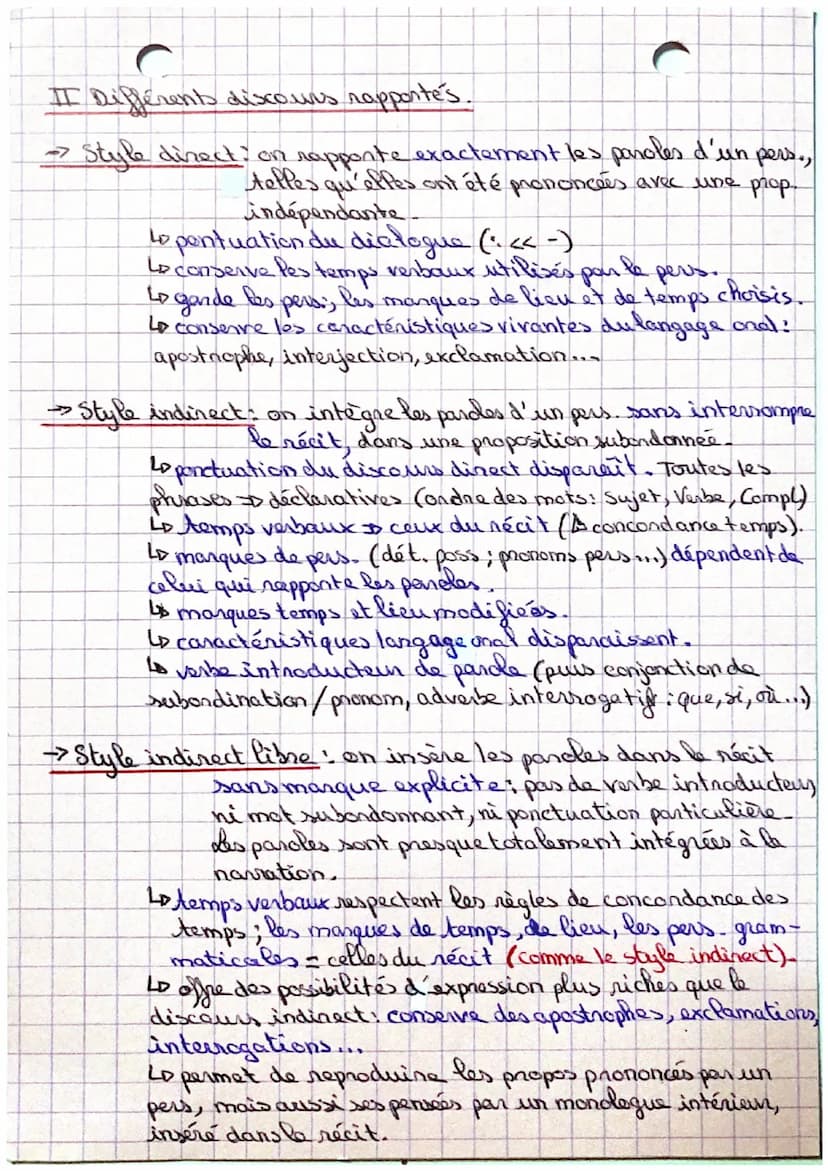 II Différents discours rapportés.
-> Style direct : on rapporte exactement les paroles d'un pers.,
telles qu'elles ont été prononcées avec une prop.
indépendante.
↳ pontuation du dialogue (: << -)
↳ conserve les temps verbaux utilisés par le pers.
↳ garde les pers., les marques de lieu et de temps choisis.
↳ conserve les caractéristiques vivantes du langage oral :
apostrophe, interjection, exclamation...
-> Style indirect : on intègre les paroles d'un pers. sans interrompre
le récit, dans une proposition subordonnée.
↳ ponctuation du discours direct disparaît. Toutes les
phrases => déclaratives (ordre des mots : Sujet, Verbe, Compl)
↳ temps verbaux => ceux du récit (⚠ concordance temps).
↳ marques de pers. (dét. poss ; pronoms pers...) dépendent de
celui qui rapporte les paroles.
↳ marques temps et lieu modifiées.
↳ caractéristiques langage oral disparaissent.
↳ verbe introducteur de parole (puis conjonction de
subordination / pronom, adverbe interrogatif : que, si, où...)
-> Style indirect libre : on insère les paroles dans le récit
sans marque explicite : pas de verbe introducteur,
ni mot subordonnant, ni ponctuation particulière.
Les paroles sont presque totalement intégrées à la
narration.
↳ temps verbaux respectent les règles de concordance des
temps ; les marques de temps, de lieu, les pers. gram-
maticales = celles du récit (comme le style indirect).
↳ offre des possibilités d'expression plus riches que le
discours indirect : conserve des apostrophes, exclamations,
interrogations...
↳ permet de reproduire les propos prononcés par un
pers, mais aussi ses pensées par un monologue intérieur,
inséré dans le récit.